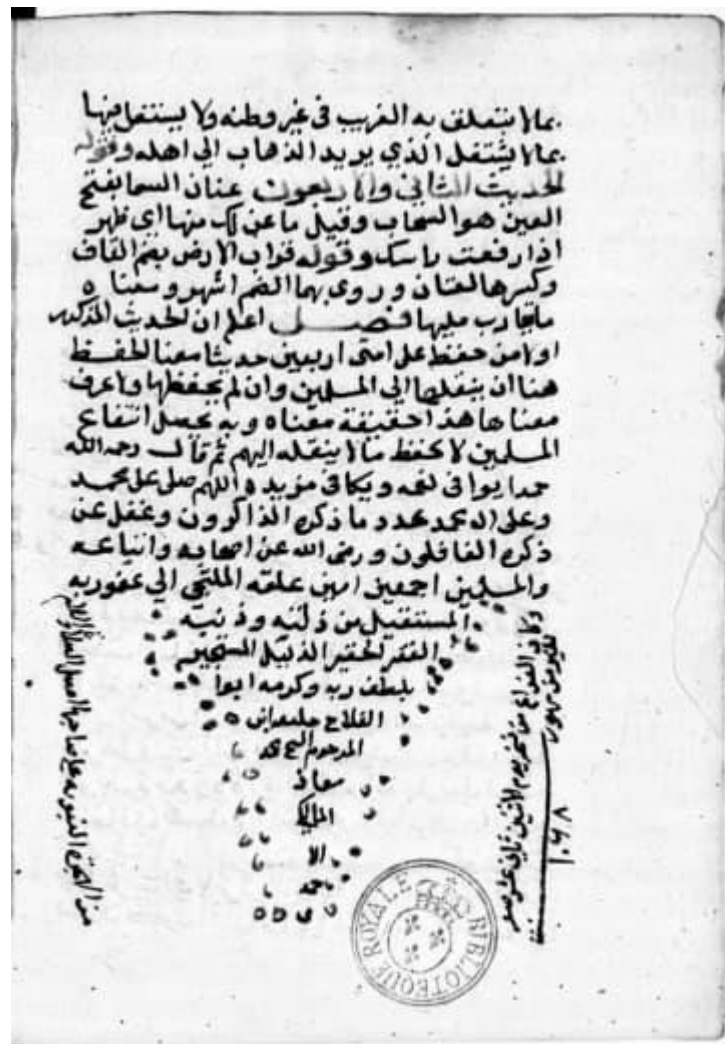 بما لا يتعلق به الغريب في غير وطنه ولا يشتغل فيها
بما لا يشتغل الذي يريد الذهاب الي اهله وقوله
الحديث الثاني والاربعون عنان السما بفتح
العين هو السحاب وقيل ما عن لك منها اي ظهر
اذا رفعت راسك وقوله قراب الارض بضم القاف
وكسرها لغتان وروي بهما الضم اشهر ومعناه
ما يقارب مليها فصل اعلم ان الحديث المذكور
اولا من حفظ علي امتي اربعين حديثا معنا الحفظ
هنا ان ينقلها الي المسلمين وان لم يحفظها ولا عرف
معناها هذا حقيقة معناه وبه يحصل انتفاع
المسلمين لا بحفظ ما لا ينقله اليهم ثم قال رحمه الله
حمدا يوافي نعمه ويكافي مزيده اللهم صل علي محمد
وعلي ال محمد عدد ما ذكره الذاكرون وغفل عن
ذكره الغافلون ورضي الله عن اصحابه واتباعه
والمسلمين اجمعين امين علقه الملتجي الي عفو ربه
المستقيل من ذلته وذنبه
الفقر الحقير الذليل المستجير
بلطف ربه وكرمه ابوا
الفلاح
المرحوم الشيخ
معاذ
المالكي
وكان الفراغ من يوم الاثنين ثاني عشر صفر
من شهور
١٠٦٨
من الهجرة النبوية علي صاحبها افضل الصلاة والسلام
BIBLIOTEQUE ROYALE